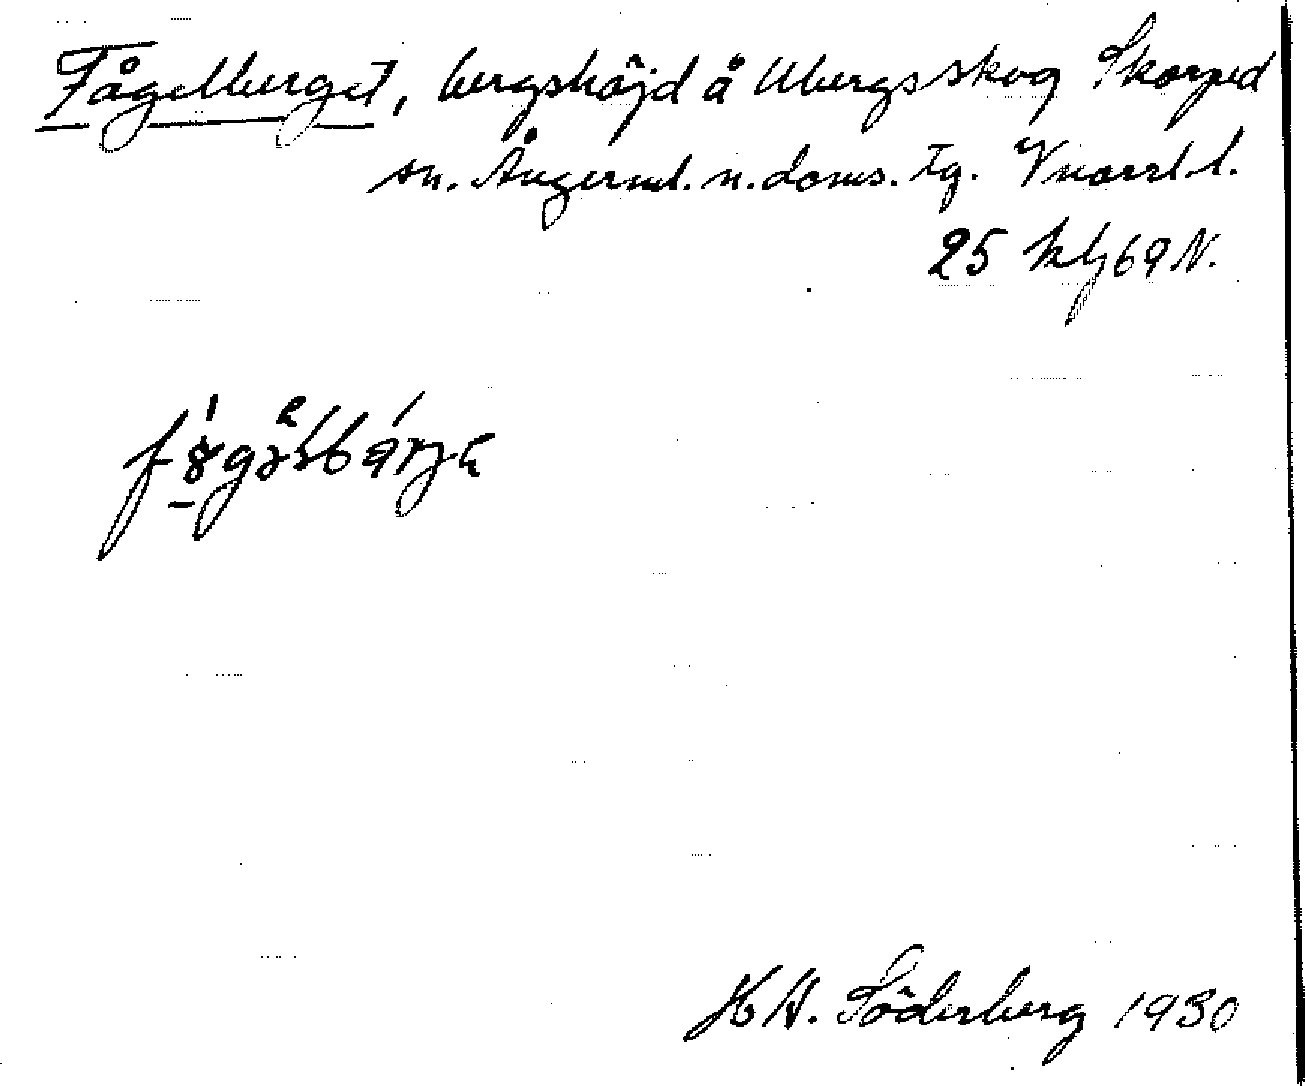 Fågelberget, bergshöjd å Ubergsskog Skorped
sn. Ångerml. n. doms. tg. Vnorrl. l.
25 N.
H A. Söderberg 1930